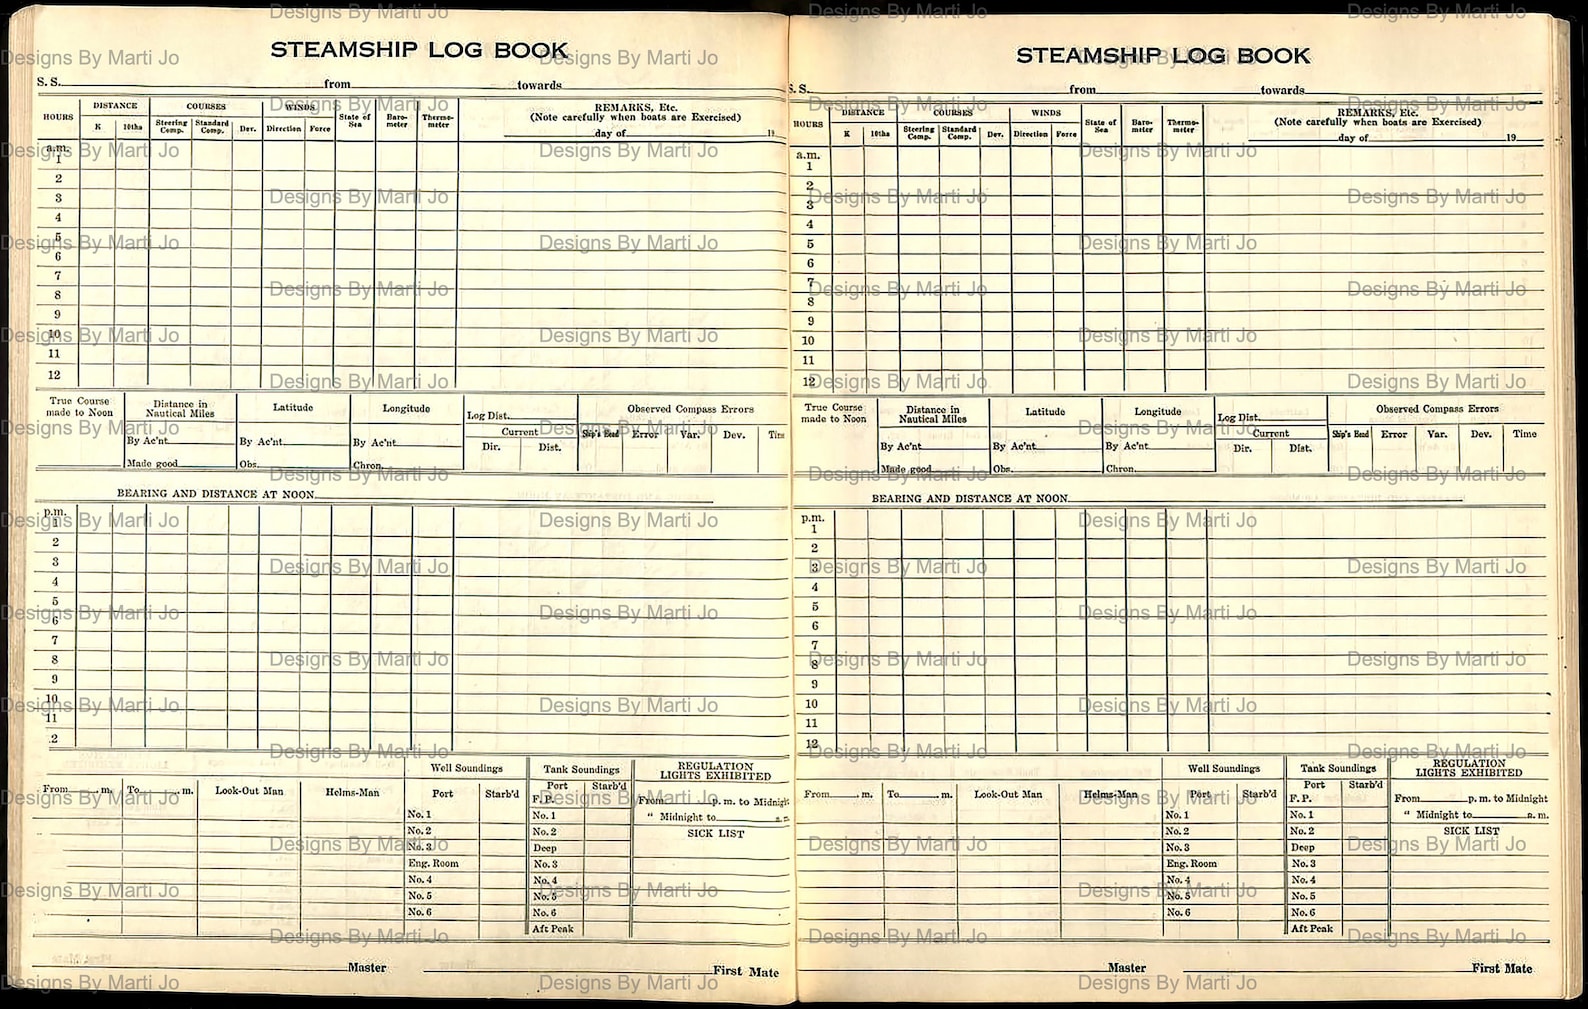 STEAMSHIP LOG BOOK
S. S. from towards
HOURS DISTANCE COURSES WINDS State of Sea Barometer Thermometer REMARKS, Etc.
(Note carefully when boats are Exercised)
K 10ths Steering Comp. Standard Comp. Dev. Direction Force
day of 19
a.m.
1
2
3
4
5
6
7
8
9
10
11
12
True Course made to Noon Distance in Nautical Miles Latitude Longitude Log Dist. Observed Compass Errors
Current
By Ac'nt By Ac'nt By Ac'nt Dir. Dist. Ship's Head Error Var. Dev. Time
Made good Obs. Chron.
BEARING AND DISTANCE AT NOON
p.m.
1
2
3
4
5
6
7
8
9
10
11
12
Well Soundings Tank Soundings REGULATION LIGHTS EXHIBITED
From m. To m. Look-Out Man Helms-Man Port Starb'd Port Starb'd
F. P. From p. m. to Midnight
No. 1 No. 1 " Midnight to a. m.
No. 2 No. 2 SICK LIST
No. 3 Deep
Eng. Room No. 3
No. 4 No. 4
No. 5 No. 5
No. 6 No. 6
Aft Peak
Master First Mate
STEAMSHIP LOG BOOK
S. S. from towards
HOURS DISTANCE COURSES WINDS State of Sea Barometer Thermometer REMARKS, Etc.
(Note carefully when boats are Exercised)
K 10ths Steering Comp. Standard Comp. Dev. Direction Force
day of 19
a.m.
1
2
3
4
5
6
7
8
9
10
11
12
True Course made to Noon Distance in Nautical Miles Latitude Longitude Log Dist. Observed Compass Errors
Current
By Ac'nt By Ac'nt By Ac'nt Dir. Dist. Ship's Head Error Var. Dev. Time
Made good Obs. Chron.
BEARING AND DISTANCE AT NOON
p.m.
1
2
3
4
5
6
7
8
9
10
11
12
Well Soundings Tank Soundings REGULATION LIGHTS EXHIBITED
From m. To m. Look-Out Man Helms-Man Port Starb'd Port Starb'd
F. P. From p. m. to Midnight
No. 1 No. 1 " Midnight to a. m.
No. 2 No. 2 SICK LIST
No. 3 Deep
Eng. Room No. 3
No. 4 No. 4
No. 5 No. 5
No. 6 No. 6
Aft Peak
Master First Mate
Designs By Marti Jo